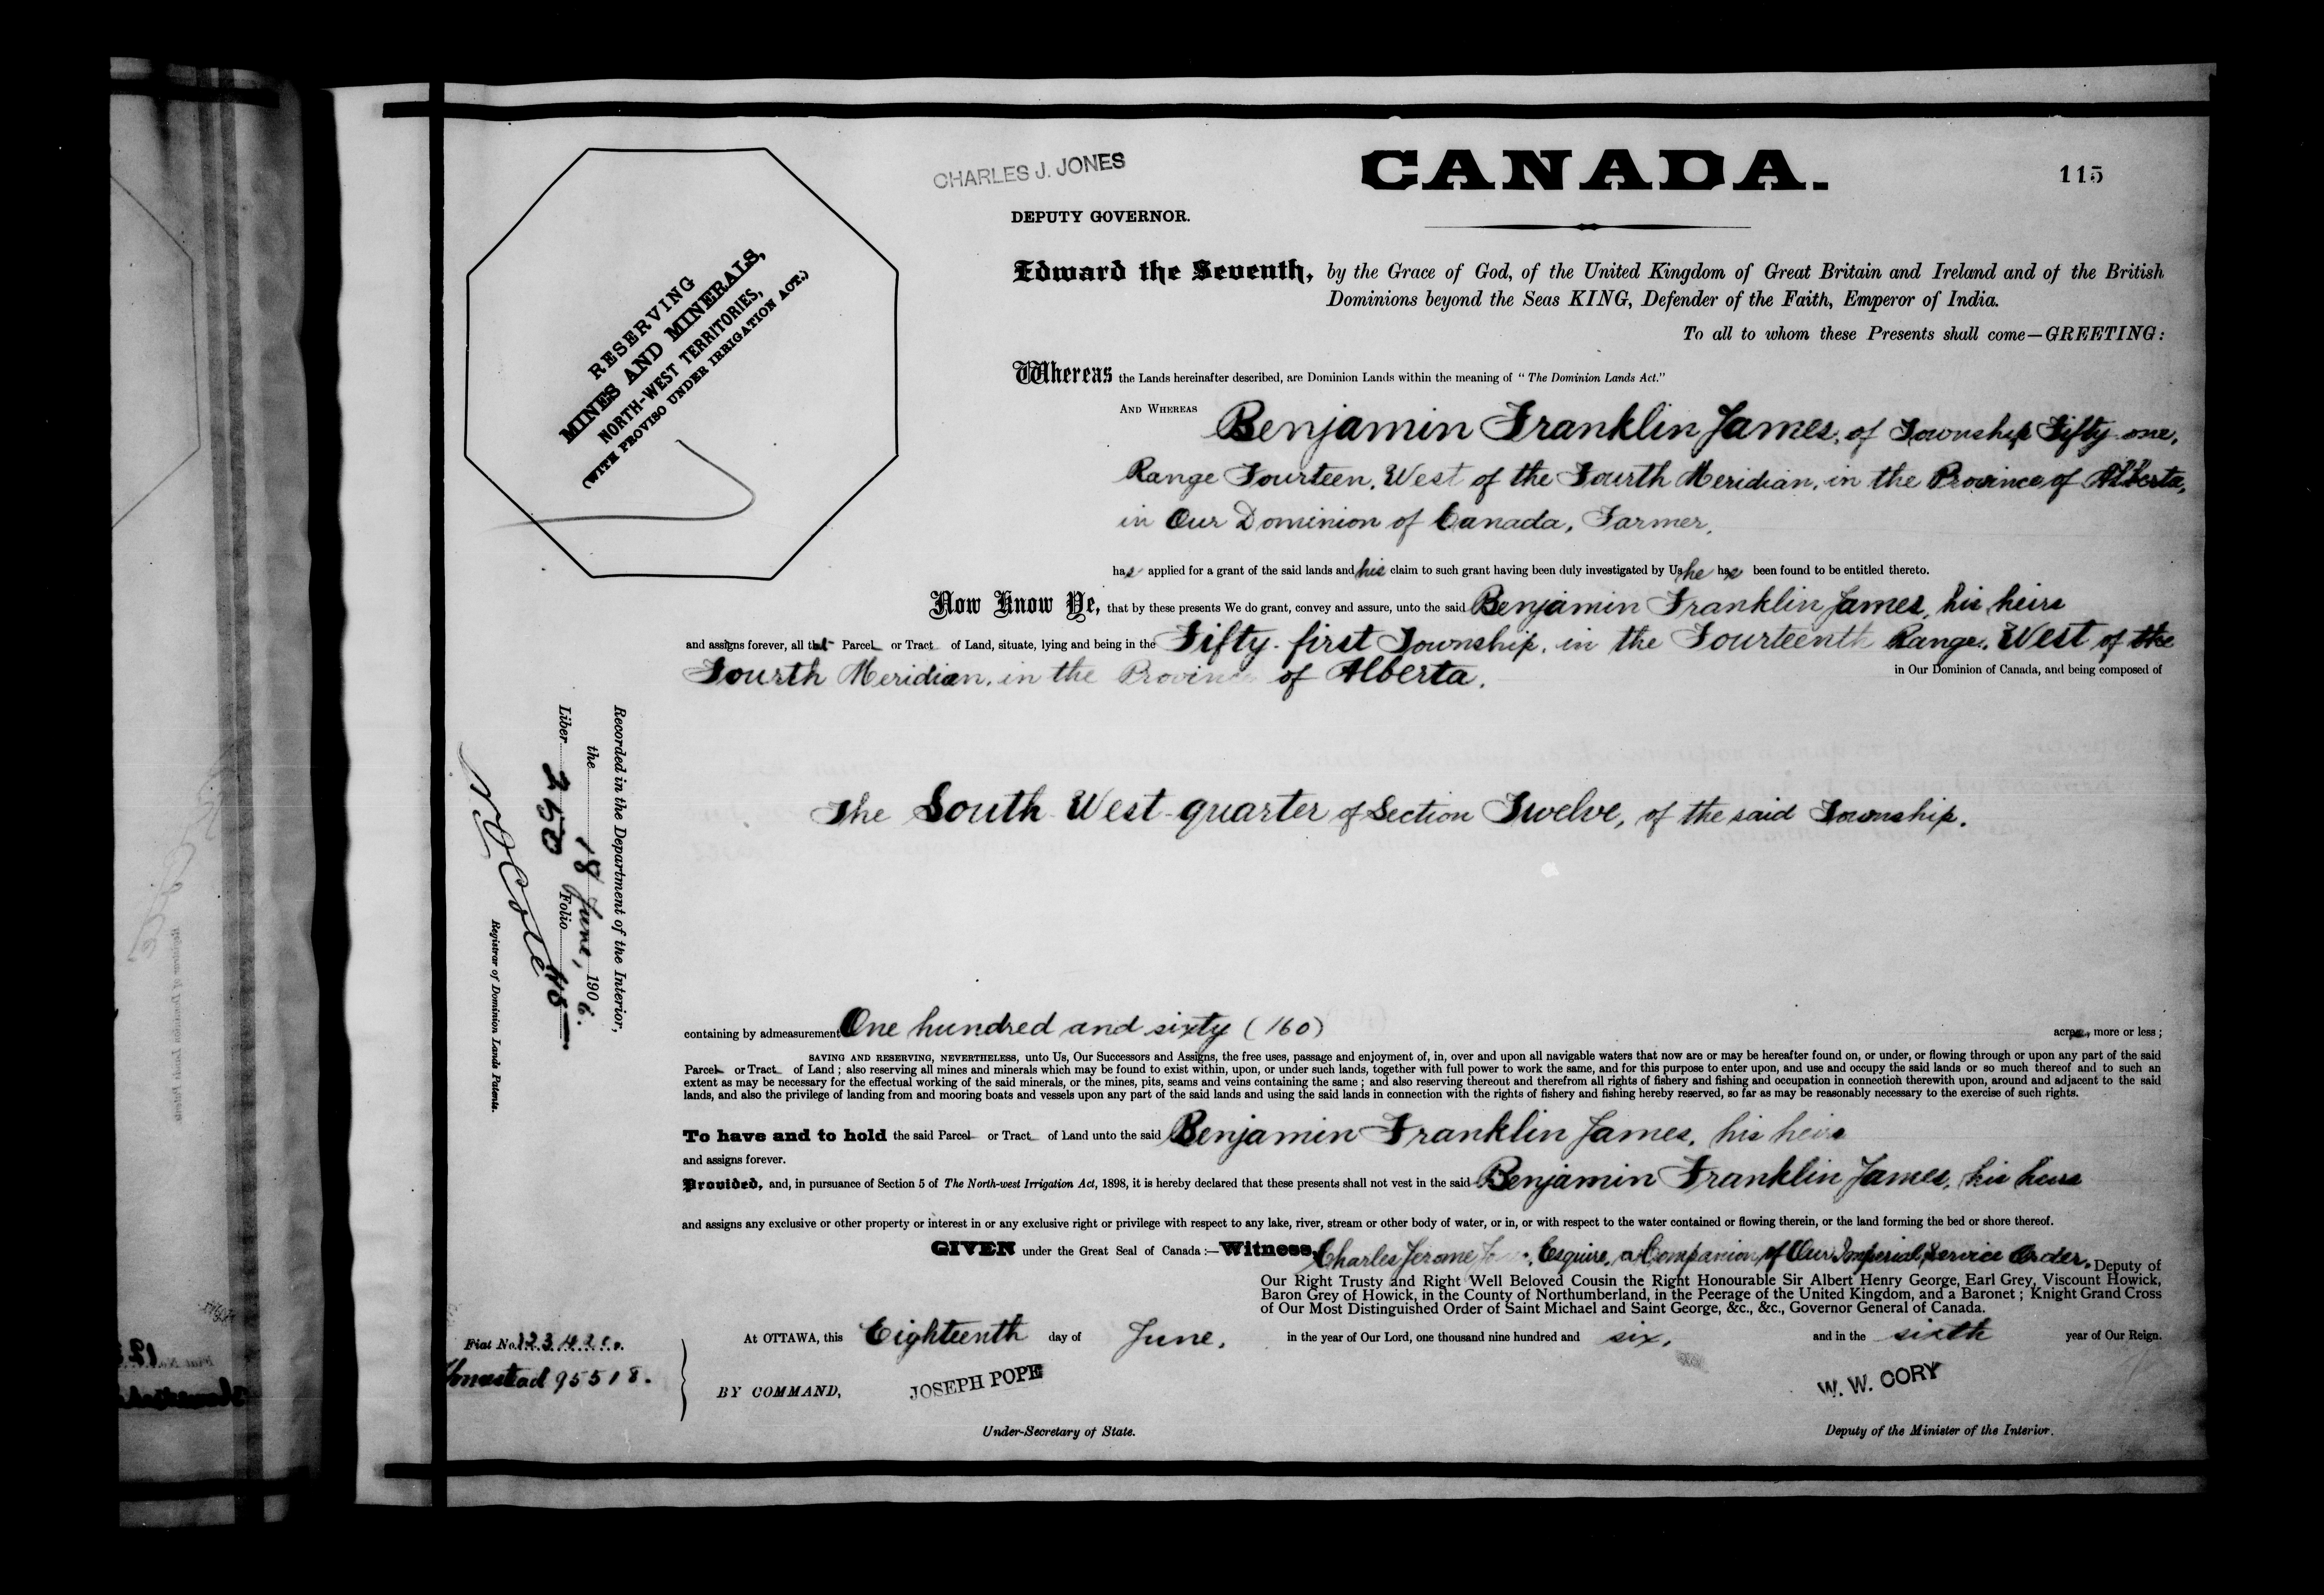 CHARLES J. JONES
CANADA.
115
DEPUTY GOVERNOR.
RESERVING
MINES AND MINERALS,
NORTH-WEST TERRITORIES,
(WITH PROVISO UNDER IRRIGATION ACT.)
Edward the Seventh, by the Grace of God, of the United Kingdom of Great Britain and Ireland and of the British
Dominions beyond the Seas KING, Defender of the Faith, Emperor of India.
To all to whom these Presents shall come—GREETING:
Whereas the Lands hereinafter described, are Dominion Lands within the meaning of "The Dominion Lands Act."
AND WHEREAS Benjamin Franklin James, of Township Fifty one,
Range Fourteen, West of the Fourth Meridian, in the Province of Alberta,
in Our Dominion of Canada, Farmer,
has applied for a grant of the said lands and his claim to such grant having been duly investigated by Us he has been found to be entitled thereto.
Now Know Ye, that by these presents We do grant, convey and assure, unto the said Benjamin Franklin James, his heirs
and assigns forever, all that Parcel or Tract of Land, situate, lying and being in the Fifty-first Township, in the Fourteenth Range, West of the
Fourth Meridian, in the Province of Alberta,
in Our Dominion of Canada, and being composed of
The South West quarter of Section Twelve, of the said Township.
Recorded in the Department of the Interior,
the 18 June, 1906.
Liber 250 Folio 115
Registrar of Dominion Lands Patents.
containing by admeasurement One hundred and sixty (160) acres, more or less;
SAVING AND RESERVING, NEVERTHELESS, unto Us, Our Successors and Assigns, the free uses, passage and enjoyment of, in, over and upon all navigable waters that now are or may be hereafter found on, or under, or flowing through or upon any part of the said
Parcel or Tract of Land; also reserving all mines and minerals which may be found to exist within, upon, or under such lands, together with full power to work the same, and for this purpose to enter upon, and use and occupy the said lands or so much thereof and to such an
extent as may be necessary for the effectual working of the said minerals, or the mines, pits, seams and veins containing the same; and also reserving thereout and therefrom all rights of fishery and fishing and occupation in connection therewith upon, around and adjacent to the said
lands, and also the privilege of landing from and mooring boats and vessels upon any part of the said lands and using the said lands in connection with the rights of fishery and fishing hereby reserved, so far as may be reasonably necessary to the exercise of such rights.
To have and to hold the said Parcel or Tract of Land unto the said Benjamin Franklin James, his heirs
and assigns forever.
Provided, and, in pursuance of Section 5 of The North-west Irrigation Act, 1898, it is hereby declared that these presents shall not vest in the said Benjamin Franklin James, his heirs
and assigns any exclusive or other property or interest in or any exclusive right or privilege with respect to any lake, river, stream or other body of water, or in, or with respect to the water contained or flowing therein, or the land forming the bed or shore thereof.
GIVEN under the Great Seal of Canada:—Witness, Charles Jerome Jones, Esquire, a Companion of Our Imperial Service Order, Deputy of
Our Right Trusty and Right Well Beloved Cousin the Right Honourable Sir Albert Henry George, Earl Grey, Viscount Howick,
Baron Grey of Howick, in the County of Northumberland, in the Peerage of the United Kingdom, and a Baronet; Knight Grand Cross
of Our Most Distinguished Order of Saint Michael and Saint George, &c., &c., Governor General of Canada.
At OTTAWA, this Eighteenth day of June, in the year of Our Lord, one thousand nine hundred and six, and in the sixth year of Our Reign.
Fiat No.
Homestead 95518.
BY COMMAND,
JOSEPH POPE
W. W. CORY
Under-Secretary of State.
Deputy of the Minister of the Interior.